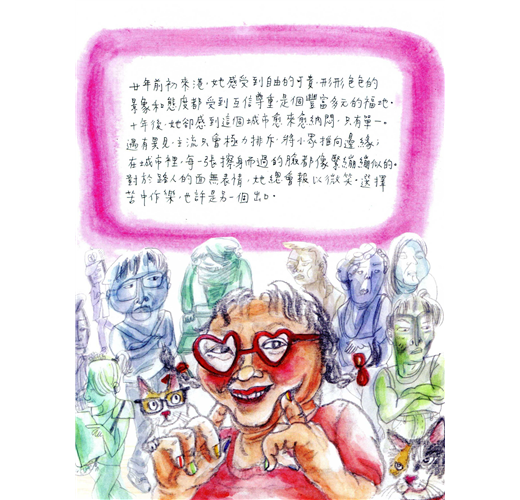 廿年前初來港,她感受到自由的可貴,形形色色的
景象和態度都受到互信尊重,是個豐富多元的福地。
十年後,她卻感到這個城市愈來愈納悶,只有單一。
遇有異見,主流只會極力排斥,將小眾推向邊緣;
在城市裡,每一張擦身而過的臉都像繫繃繃似的。
對於路人的面無表情,她總會報以微笑。選擇
苦中作樂,也許是另一個出口。